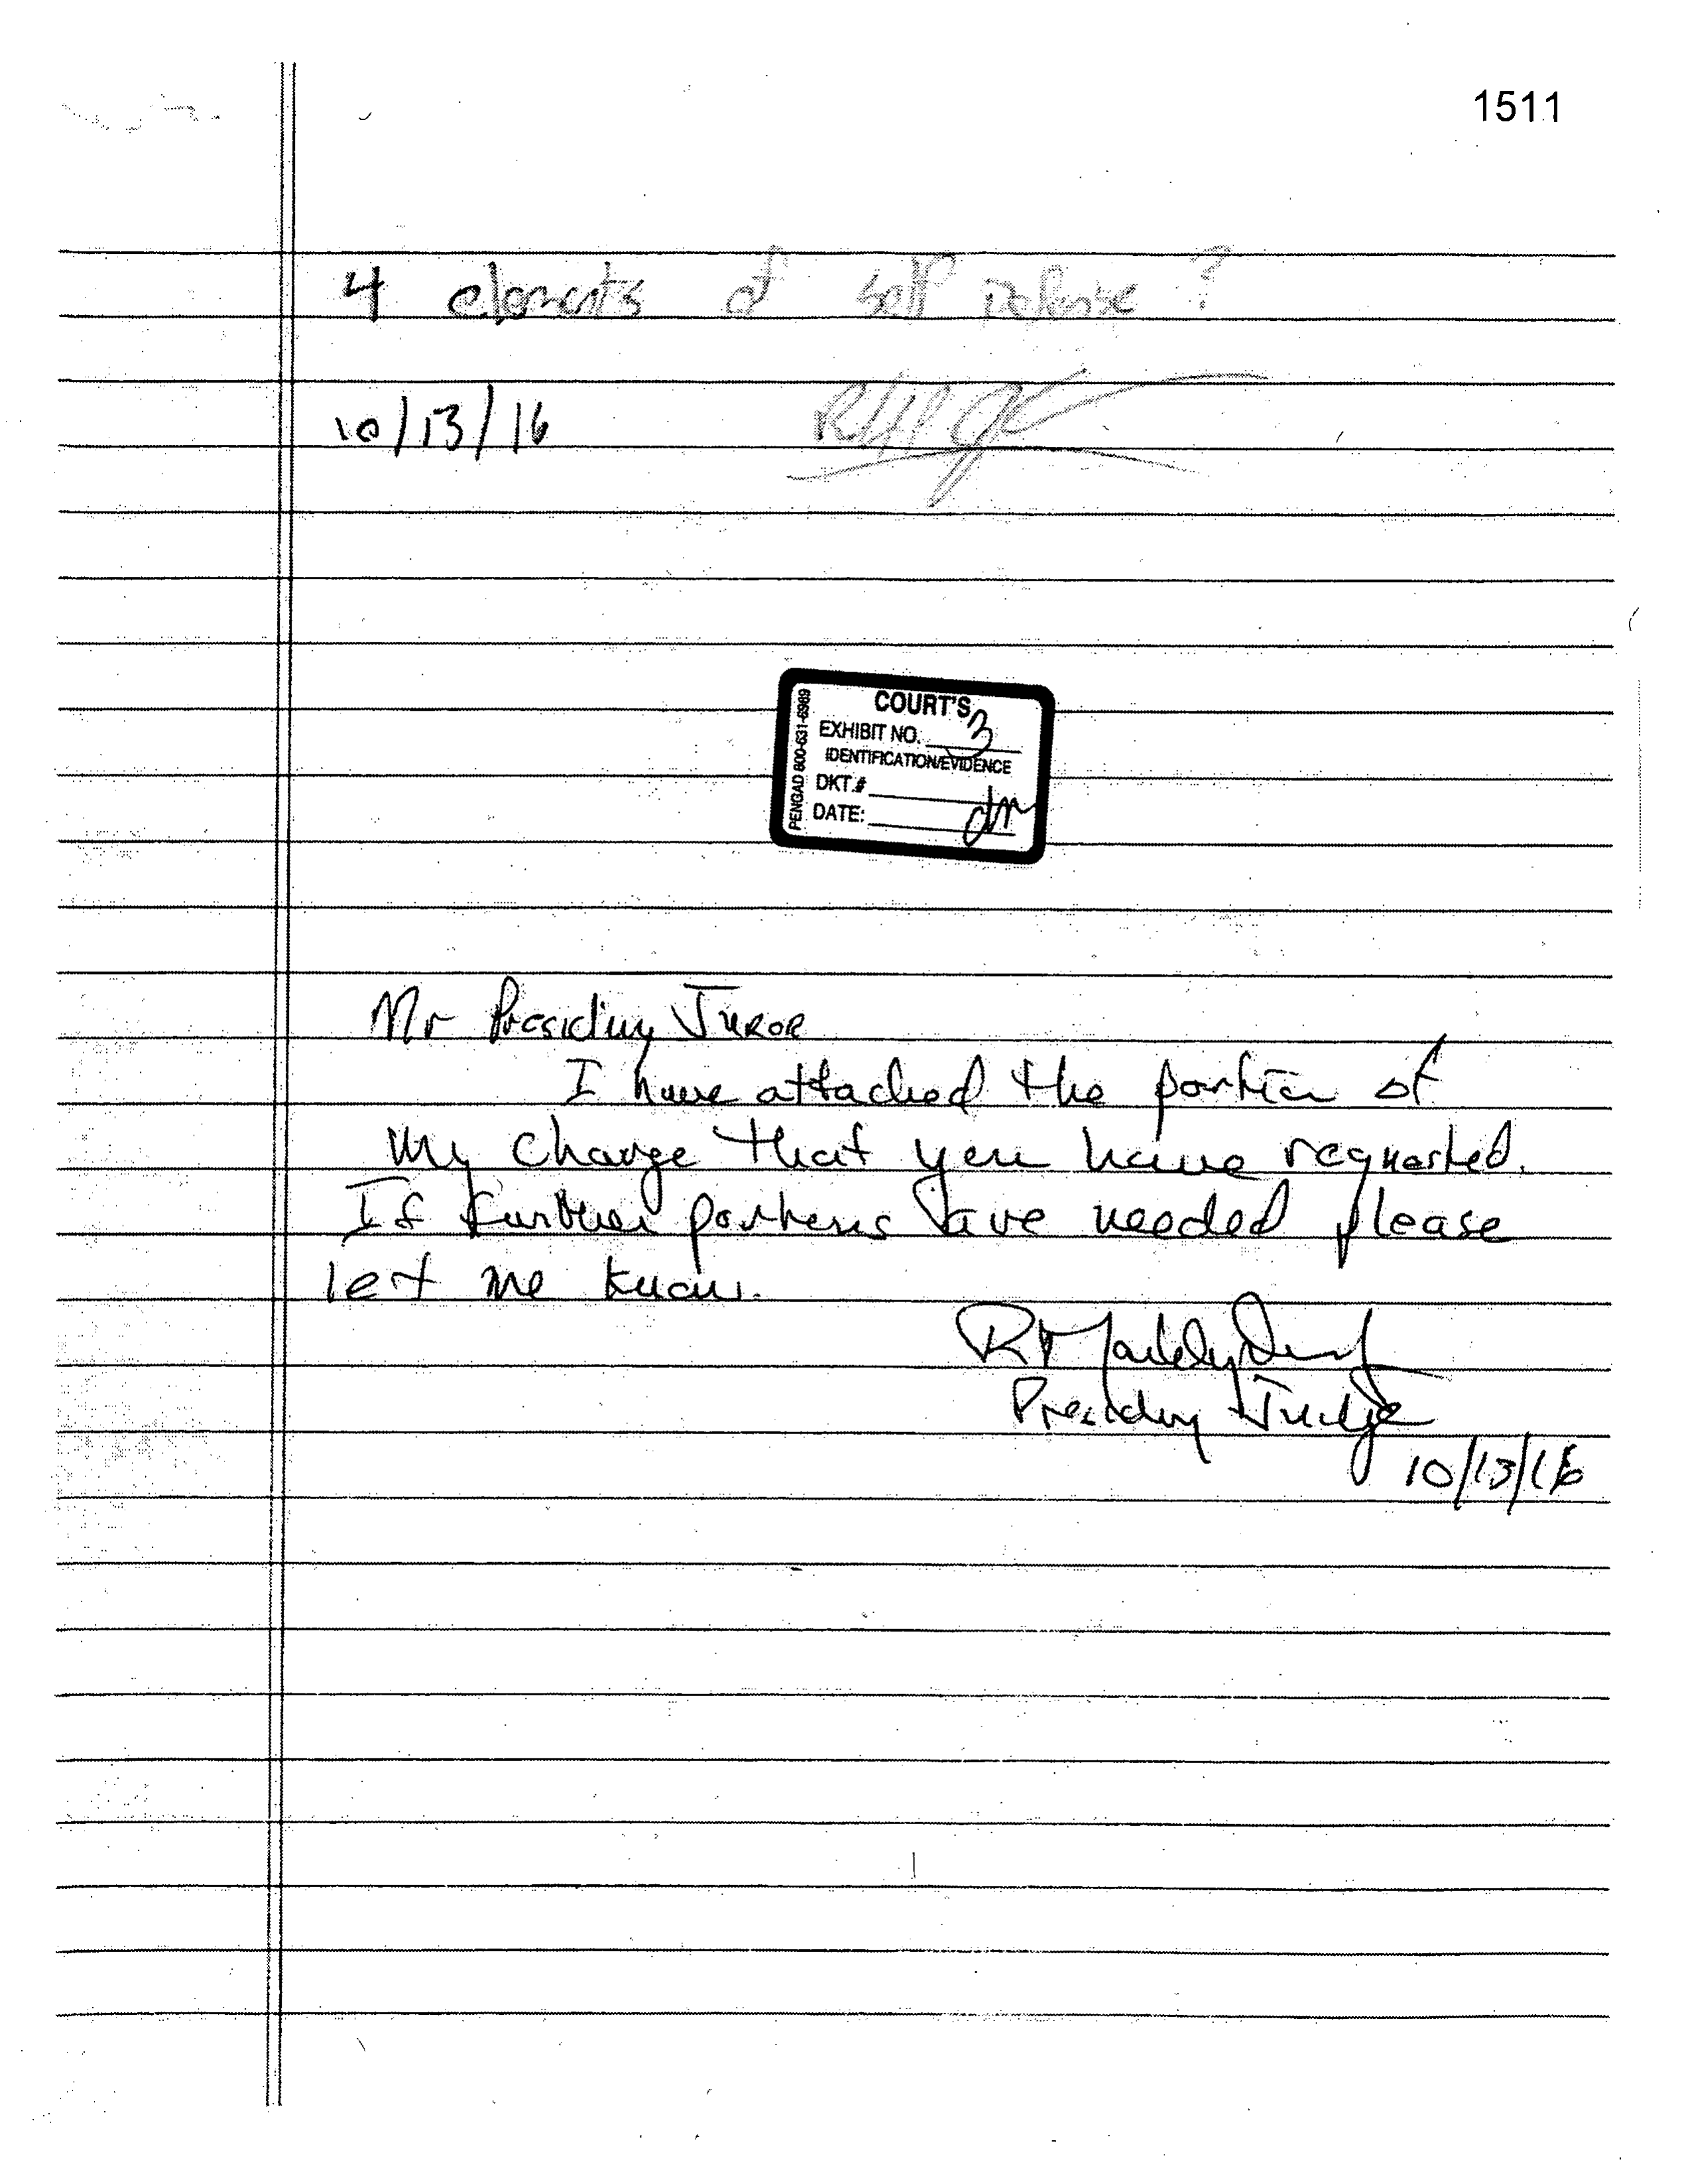 1511
4 elements of self Defense?
10/13/16
COURT'S
EXHIBIT NO. 3
IDENTIFICATION/EVIDENCE
DKT.#
DATE: dm
PENGAD 800-631-6989
Mr Presiding Juror
I have attached the portion of
my charge that you have requested.
If further portions are needed please
let me know.
Presiding Judge
10/13/16